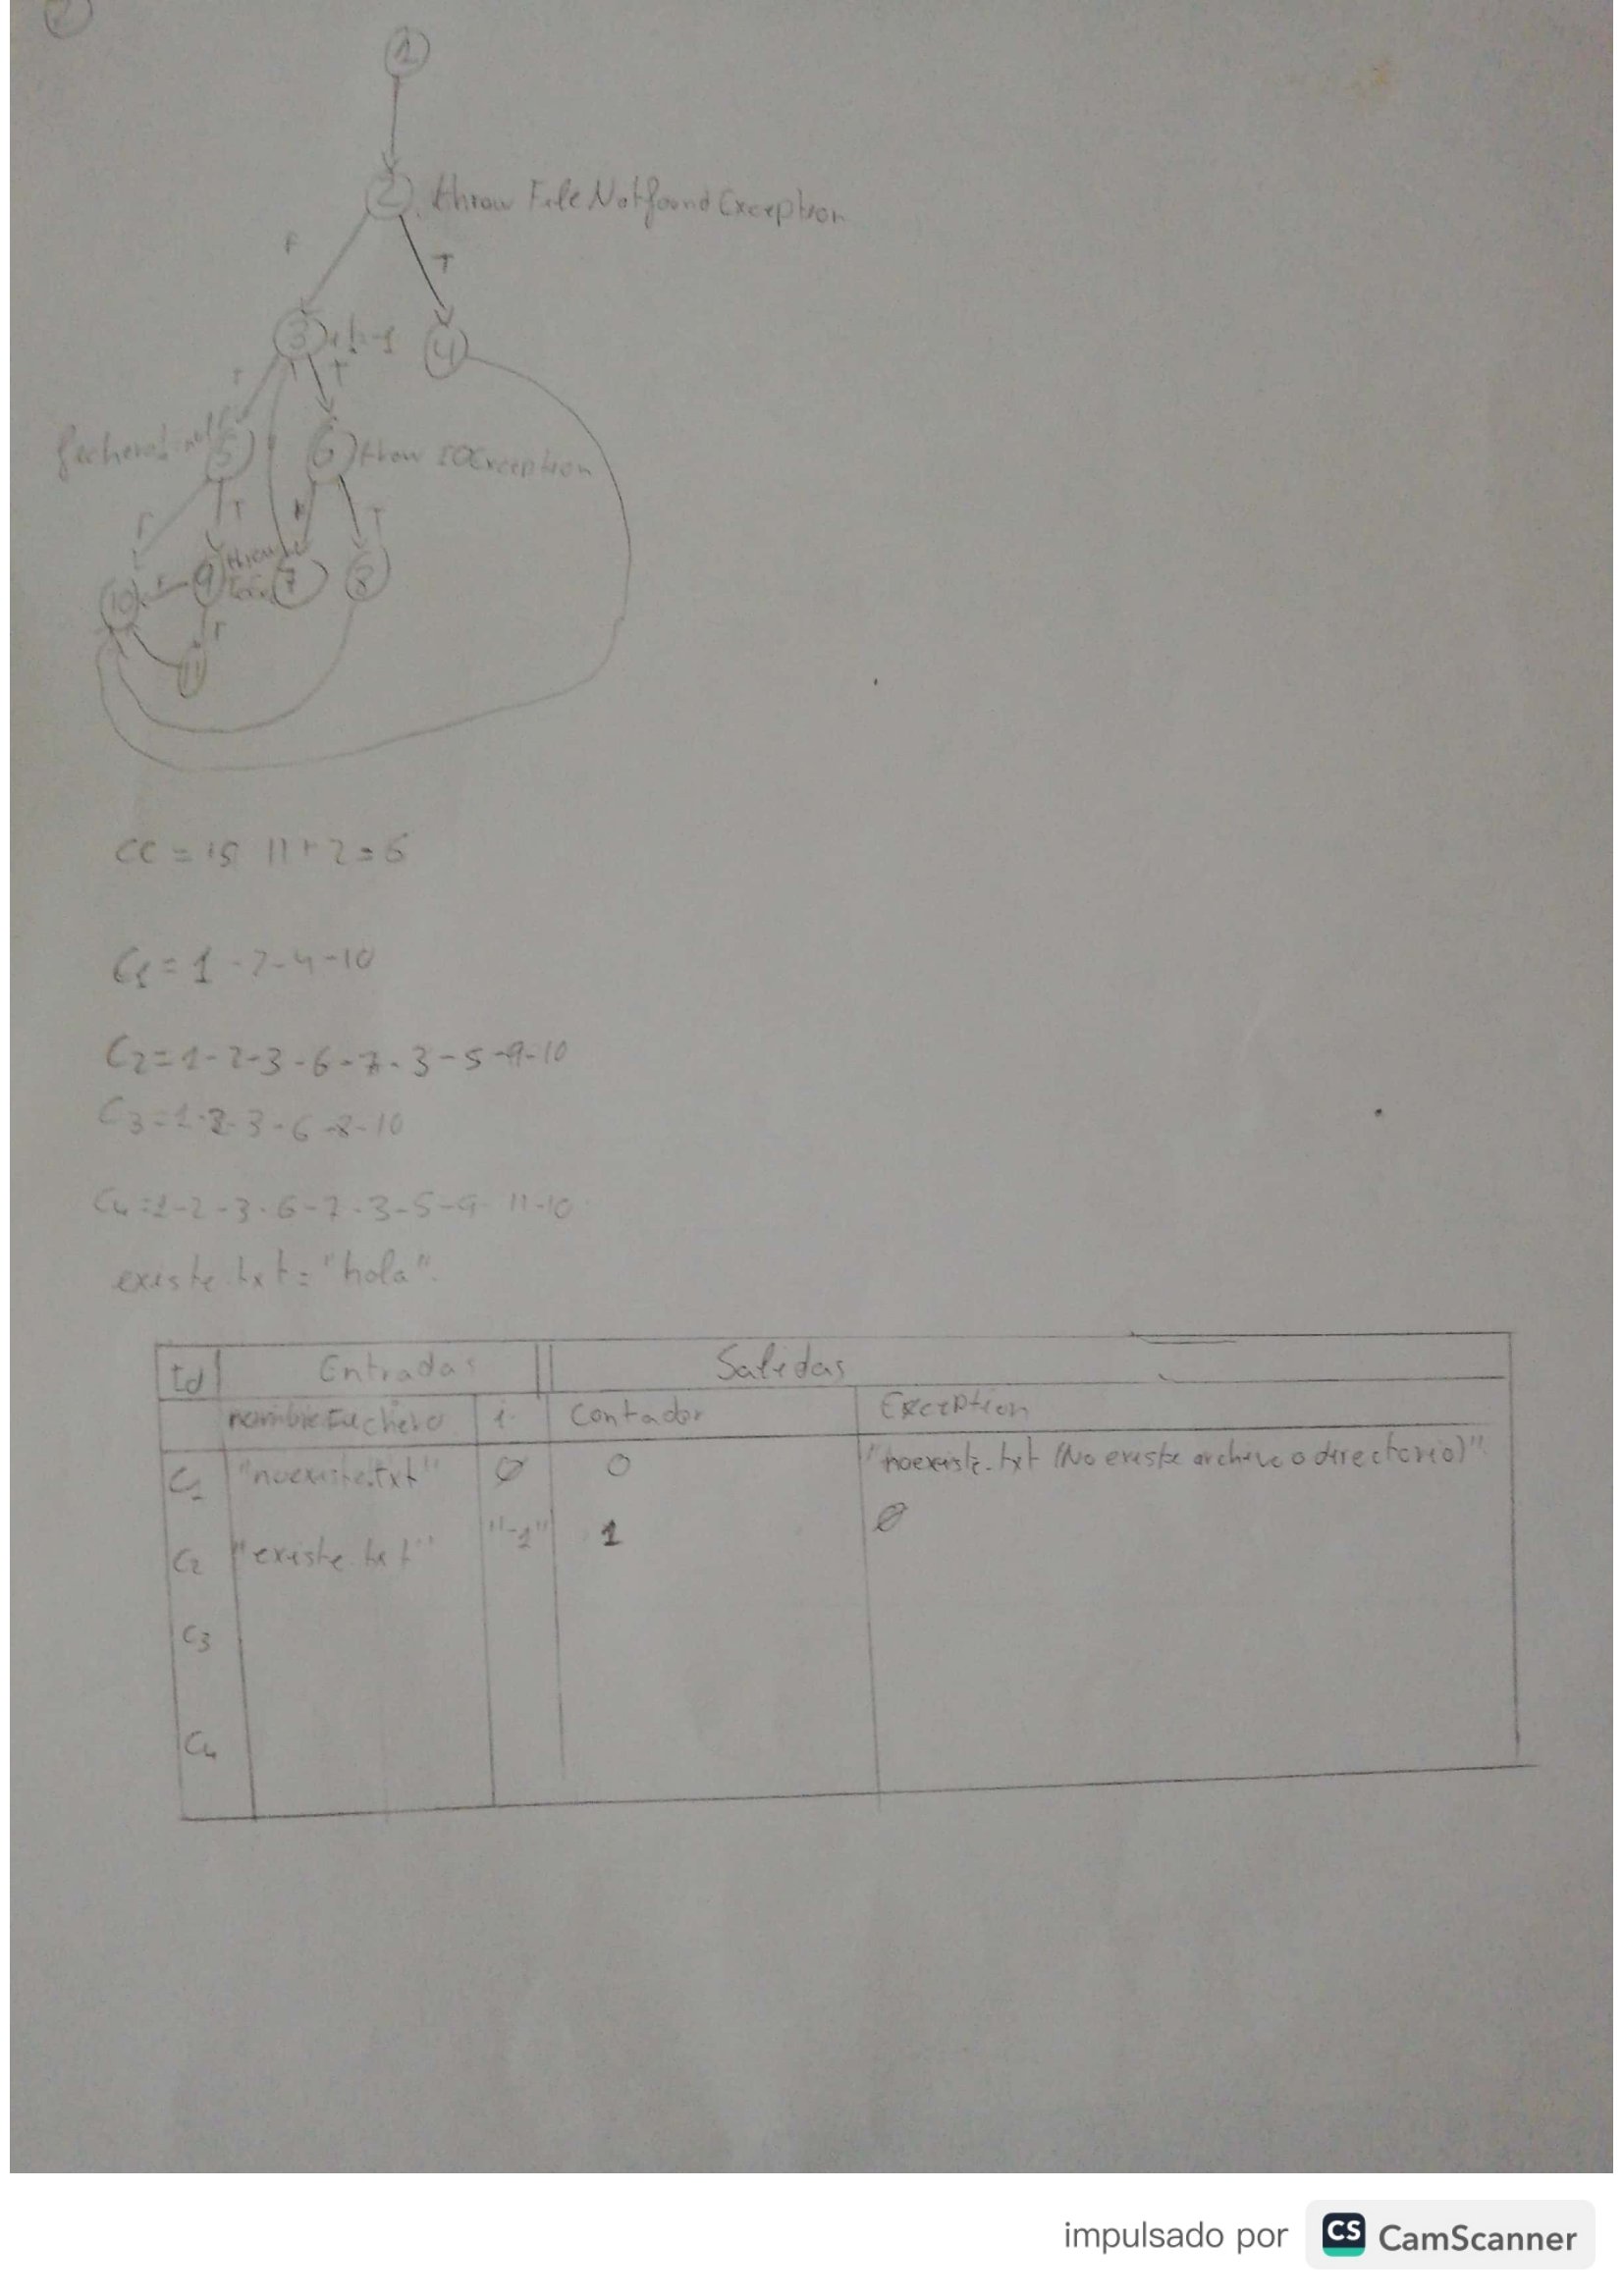 1
2 throw FileNotfoundException
F T
3 i!=-1 4
F T
fichero!=null 5 6 throw IOException
F T F T
10 F 9 throw 7 8
T
11
CC = 15 11+2=6
C1 = 1-2-4-10
C2=1-2-3-6-7-3-5-9-10
C3=1-2-3-6-8-10
C4=1-2-3-6-7-3-5-9-11-10
existe.txt="hola".
Id Entradas Salidas
nombreFichero i Contador Exception
C1 "noexiste.txt" Ø 0 "noexiste.txt (No existe archivo o directorio)"
C2 "existe.txt" "-1" 1 Ø
C3
C4
impulsado por CS CamScanner